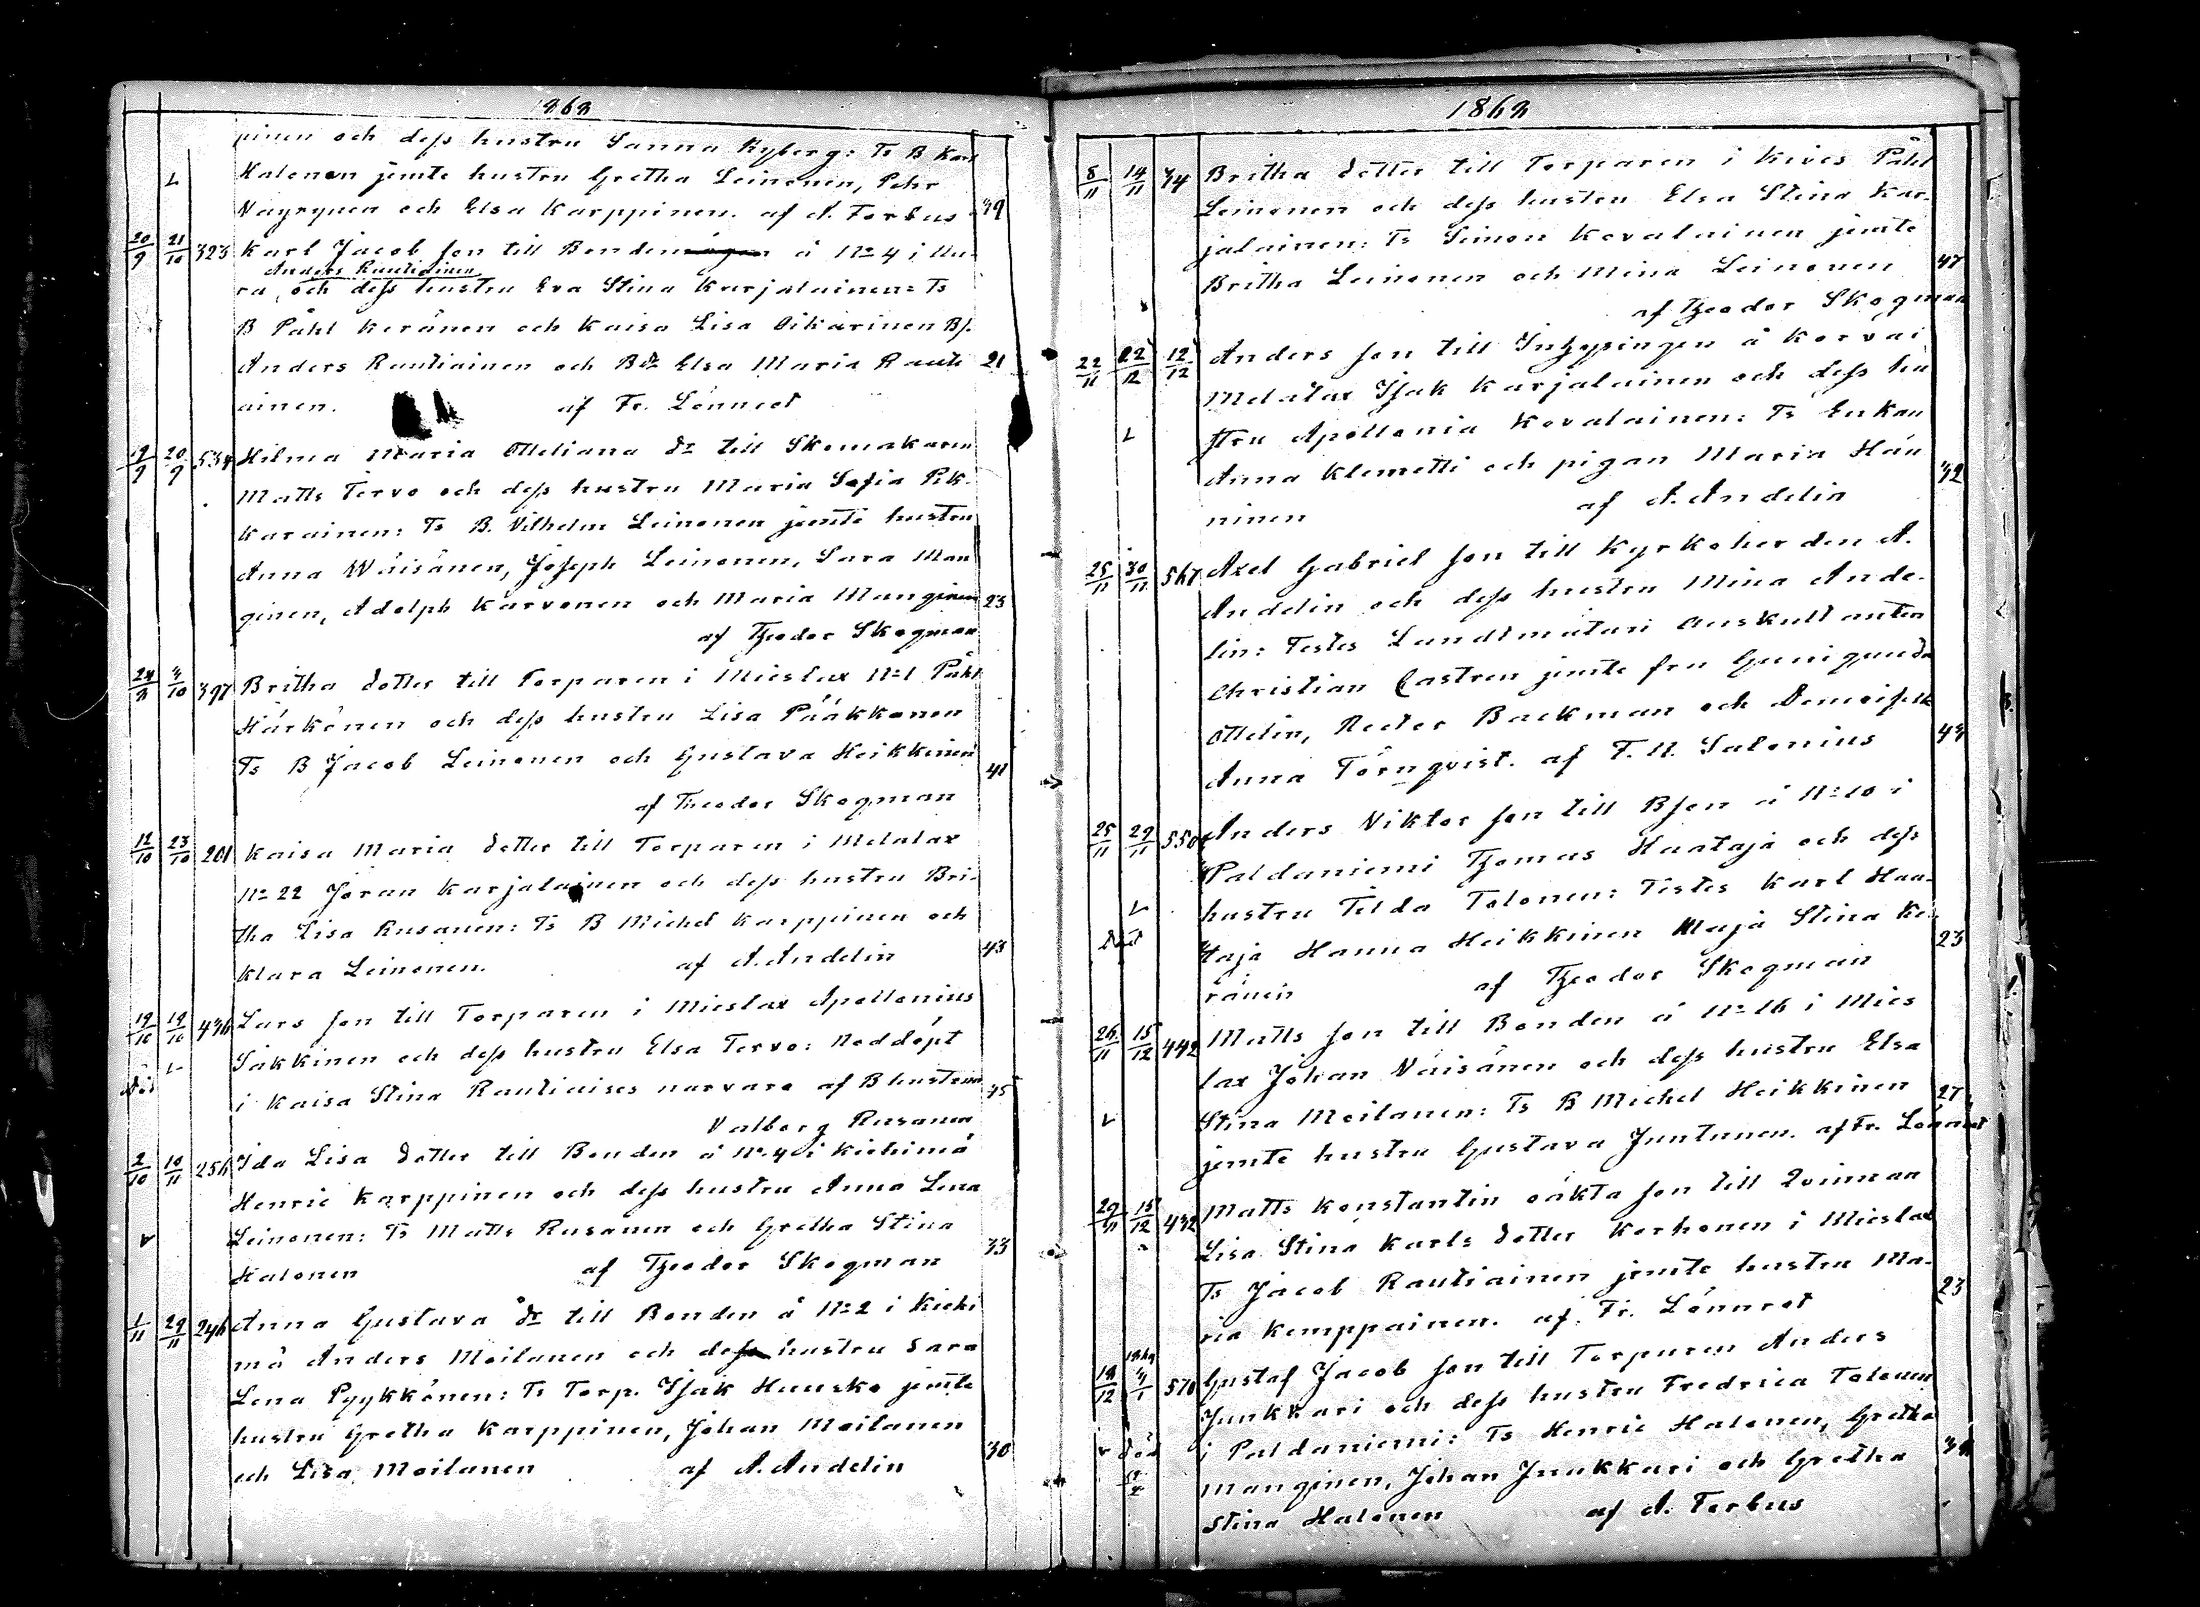 1863
pinen och dess hustru Sanna Ryberg: Ts B Karl
Halonen jemte hustru Gretha Leinonen, Pehr
Näyrynen och Elsa Karppinen. af A. Forbus 39
20/9 21/10 323 Karl Jacob son till Bonden å No 4 i Uu
Anders Rautiainen
ra, och dess hustru Eva Stina Karjalainen: Ts
B Påhl Keränen och Kaisa Lisa Oikarinen Bs.
Anders Rautiainen och Bdr Elsa Maria Rauti 21
ainen. af Fr. Lönnrot
19/9 20/9 534 Hilma Maria Otteliana dr till Skomakaren
Matts Tervo och dess hustru Maria Sofia Pik-
karainen: Ts B. Vilhelm Leinonen jemte hustru
Anna Wäisänen, Joseph Leinonen, Sara Man
ginen, Adolph Karvonen och Maria Manginen 23
af Theodor Skogman
24/9 4/10 397 Britha dotter till Torparen i Mieslax No 1 Påhl
Härkönen och dess hustru Lisa Pääkkönen
Ts B Jacob Leinonen och Gustava Heikkinen 41
af Theodor Skogman
12/10 23/10 201 Kaisa Maria dotter till Torparen i Melalax
No 22 Jöran Karjalainen och dess hustru Bri-
tha Lisa Rusanen: Ts B Michel Karppinen och
Klara Leinonen. af A. Andelin 43
19/10 19/10 436 Lars son till Torparen i Mieslax Apollonius
Säkkinen och dess hustru Elsa Tervo: Nöddöpt
död i Kaisa Stina Rautiaises närvaro af B hustrun 45
Valborg Rusanen
2/10 10/11 256 Ida Lisa dotter till Bonden å No 4 i Kiehimä
Henric Karppinen och dess hustru Anna Lena
Leinonen: Ts Matts Rusanen och Gretha Stina
Halonen af Theodor Skogman 33
1/11 29/11 246 Anna Gustava dr till Bonden å No 2 i Kiehi
mä Anders Moilanen och dess hustru Sara
Lena Pyykkönen: Ts Torp. Isak Huusko jemte
hustru Gretha Karppinen, Johan Moilanen
och Lisa Moilanen af A. Andelin 30
1863
8/11 14/11 34 Britha dotter till Torparen i Kives Påhl
Leinonen och dess hustru Elsa Stina Kar-
jalainen: Ts Simon Kovalainen jemte
Britha Leinonen och Mina Leinonen 47
af Theodor Skogman
22/11 22/12 12/12 Anders son till Inhysingen å Korvai
Melalax Isak Karjalainen och dess hu
stru Apollonia Kovalainen: Ts Enkan
Anna Klemetti och pigan Maria Hän 32
ninen af A. Andelin
25/11 30/11 567 Axel Gabriel son till Kyrkoherden A.
Andelin och dess hustru Mina Ande-
lin: Testes Landtmäteri auskultanten
Christian Castren jemte fru Gunigunda
Ottelin, Rector Backman och Demoiselle 44
Anna Törnqvist. af F. U. Salonius
25/11 29/11 550 Anders Viktor son till Bson å No 10 i
Paldaniemi Thomas Haataja och dess
hustru Tilda Tolonen: Testes Karl Haa-
död taja Hanna Heikkinen Maja Stina Ke- 23
ränen af Theodor Skogman
26/11 15/12 442 Matts son till Bonden å No 16 i Mies
lax Johan Väisänen och dess hustru Elsa
Stina Moilanen: Ts B Michel Heikkinen 27
jemte hustru Gustava Juntunen. af Fr. Lönnrot
29/11 15/12 432 Matts Konstantin oäkta son till Qvinnan
Lisa Stina Karls dotter Korhonen i Mieslax
Ts Jacob Rautiainen jemte hustru Ma- 23
ria Kemppainen. af Fr. Lönnrot
18/12 1864 4/1 570 Gustaf Jacob son till Torparen Anders
Junkkari och dess hustru Fredrica Tolonen
död i Paldaniemi: Ts Henric Halonen, Gretha 34
Manginen, Johan Junkkari och Gretha
Stina Halonen af A. Forbus